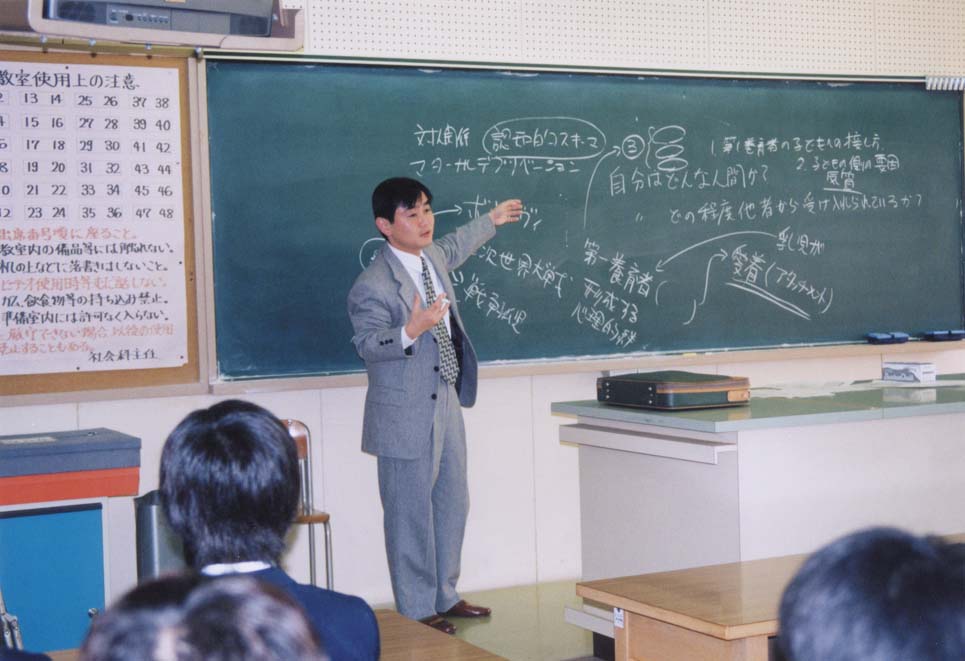 教室使用上の注意
2 13 14 25 26 37 38
4 15 16 27 28 39 40
6 17 18 29 30 41 42
8 19 20 31 32 43 44
10 21 22 33 34 45 46
12 23 24 35 36 47 48
出席番号順に座ること。
教室内の備品等には触れない。
机の上などに落書きはしないこと。
ビデオ使用時等
ガム、飲食物等の持ち込み禁止。
準備室内には許可なく入らない。
厳守できない場合 以後の使用
禁止することもある。
社会科主任
対人関係 認知的スキーマ
マターナルデプリベーション
③
1. 第1養育者の子どもへの接し方
2. 子どもの側の要因
自分はどんな人間か?
〃 どの程度他者から受け入れられているか?
ボ ィ
次世界大戦
戦争
第一養育者
形成する
心理的
乳児が
愛着(アタッチメント)